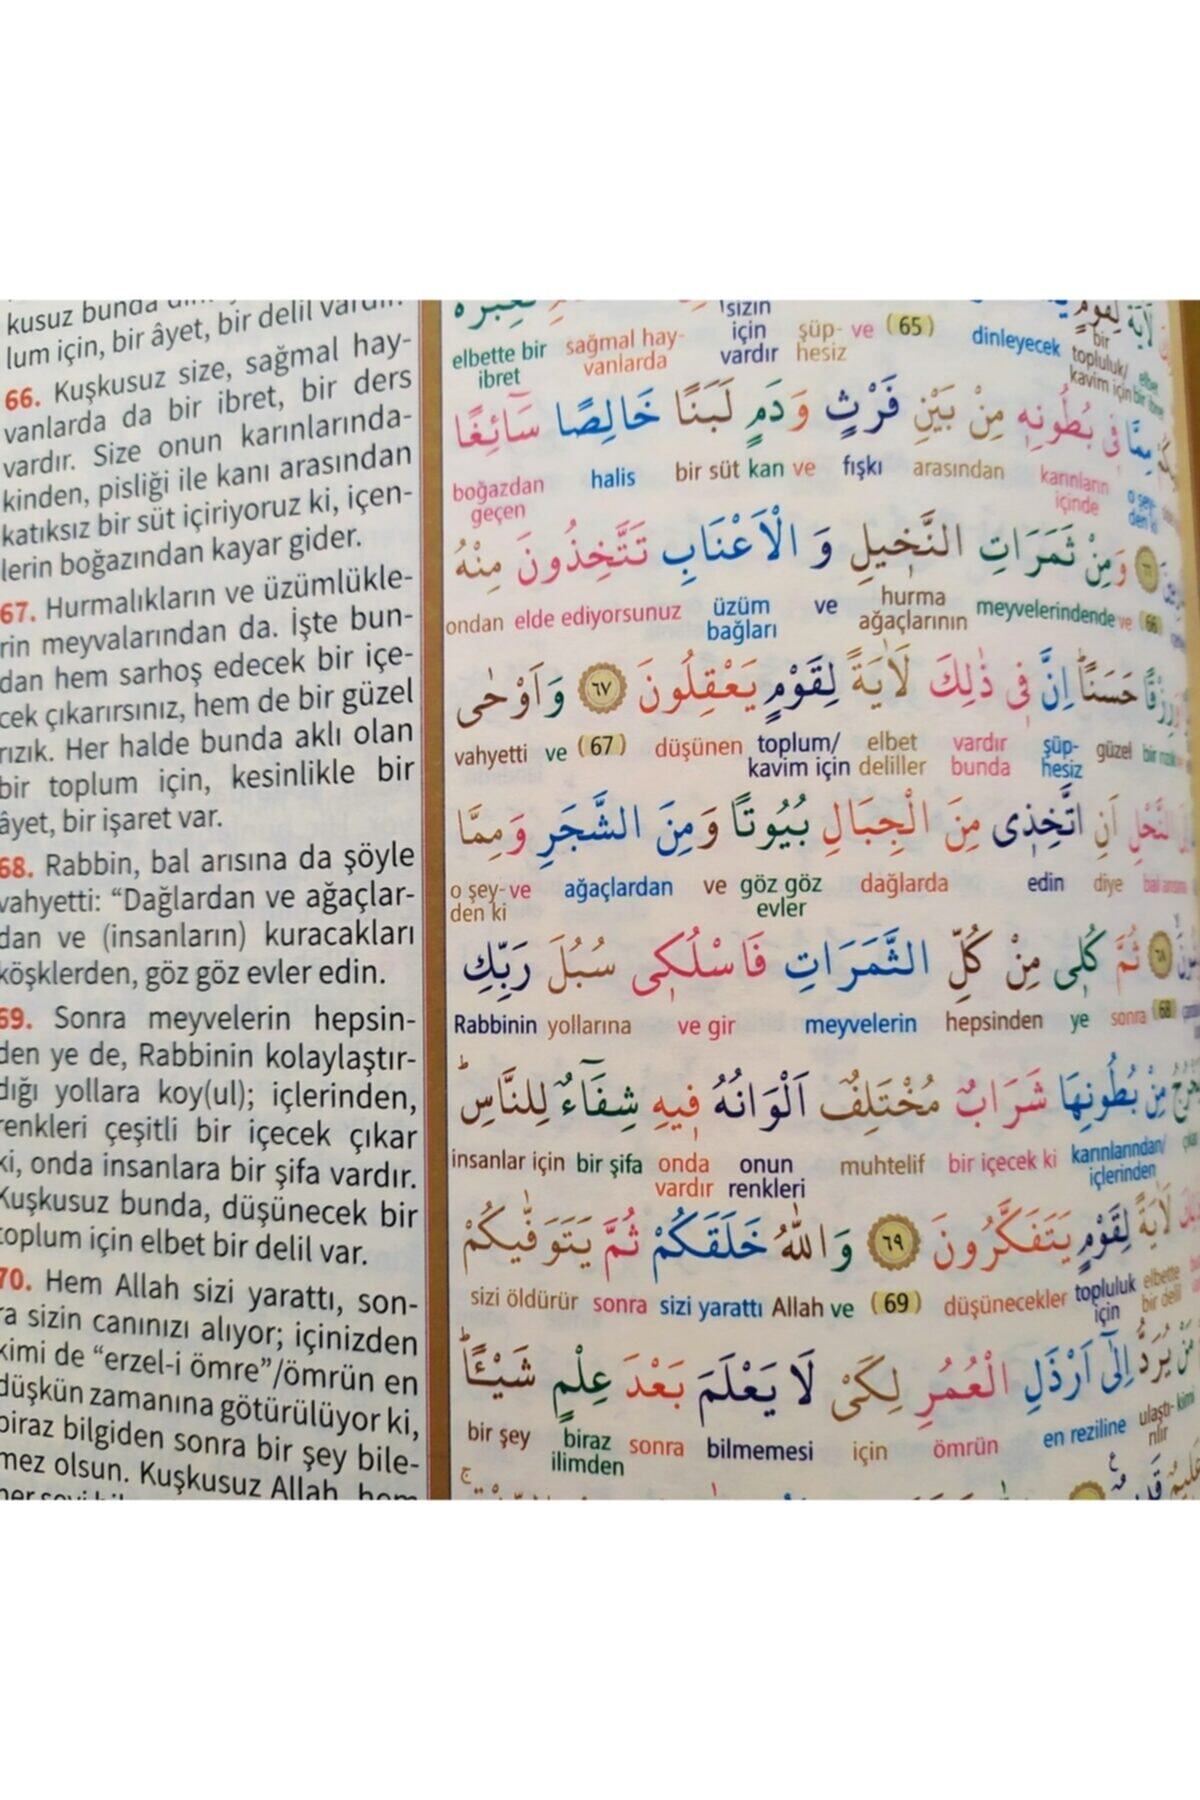 kusuz bunda
lum için, bir âyet, bir delil vardır.
66. Kuşkusuz size, sağmal hay-
vanlarda da bir ibret, bir ders
vardır. Size onun karınlarında-
kinden, pisliği ile kanı arasından
katıksız bir süt içiriyoruz ki, içen-
lerin boğazından kayar gider.
67. Hurmalıkların ve üzümlükle-
rin meyvalarından da. İşte bun-
dan hem sarhoş edecek bir içe-
cek çıkarırsınız, hem de bir güzel
rızık. Her halde bunda aklı olan
bir toplum için, kesinlikle bir
âyet, bir işaret var.
68. Rabbin, bal arısına da şöyle
vahyetti: “Dağlardan ve ağaçlar-
dan ve (insanların) kuracakları
köşklerden, göz göz evler edin.
69. Sonra meyvelerin hepsin-
den ye de, Rabbinin kolaylaştır-
dığı yollara koy(ul); içlerinden,
renkleri çeşitli bir içecek çıkar
ki, onda insanlara bir şifa vardır.
Kuşkusuz bunda, düşünecek bir
toplum için elbet bir delil var.
70. Hem Allah sizi yarattı, son-
ra sizin canınızı alıyor; içinizden
kimi de “erzel-i ömre”/ömrün en
düşkün zamanına götürülüyor ki,
biraz bilgiden sonra bir şey bile-
mez olsun. Kuşkusuz Allah, hem
لَاٰيَةً لِقَوْمٍ
elbette bir ibret sağmal hay-vanlarda sizin için vardır şüp-hesiz ve (65) dinleyecek bir topluluk/kavim için
مِمَّا فٖي بُطُونِهٖ مِنْ بَيْنِ فَرْثٍ وَدَمٍ لَبَنًا خَالِصًا سَٓائِغًا
boğazdan geçen halis bir süt kan ve fışkı arasından karınların içinde o şey-den ki
وَمِنْ ثَمَرَاتِ النَّخٖيلِ وَ الْاَعْنَابِ تَتَّخِذُونَ مِنْهُ
ondan elde ediyorsunuz üzüm bağları ve hurma ağaçlarının meyvelerindende ve (66)
وَرِزْقًا حَسَنًا اِنَّ فٖي ذٰلِكَ لَاٰيَةً لِقَوْمٍ يَعْقِلُونَ ٦٧ وَاَوْحٰى
vahyetti ve (67) düşünen toplum/kavim için elbet deliller vardır bunda şüp-hesiz güzel bir rızık
النَّحْلِ اَنِ اتَّخِذٖي مِنَ الْجِبَالِ بُيُوتًا وَمِنَ الشَّجَرِ وَمِمَّا
o şey-den ki ve ağaçlardan ve göz göz evler dağlarda edin diye bal arısına
٦٨ ثُمَّ كُلٖي مِنْ كُلِّ الثَّمَرَاتِ فَاسْلُكٖي سُبُلَ رَبِّكِ
Rabbinin yollarına ve gir meyvelerin hepsinden ye sonra (68)
مِنْ بُطُونِهَا شَرَابٌ مُخْتَلِفٌ اَلْوَانُهُ فٖيهِ شِفَٓاءٌ لِلنَّاسِ
insanlar için bir şifa onda vardır onun renkleri muhtelif bir içecek ki karınlarından/içlerinden
لَاٰيَةً لِقَوْمٍ يَتَفَكَّرُونَ ٦٩ وَاللّٰهُ خَلَقَكُمْ ثُمَّ يَتَوَفّٰيكُمْ
sizi öldürür sonra sizi yarattı Allah ve (69) düşünecekler topluluk için elbette bir delil
مَنْ يُرَدُّ اِلٰٓى اَرْذَلِ الْعُمُرِ لِكَىْ لَا يَعْلَمَ بَعْدَ عِلْمٍ شَيْـًٔا
bir şey biraz ilimden sonra bilmemesi için ömrün en reziline ulaştı-rılır kimi